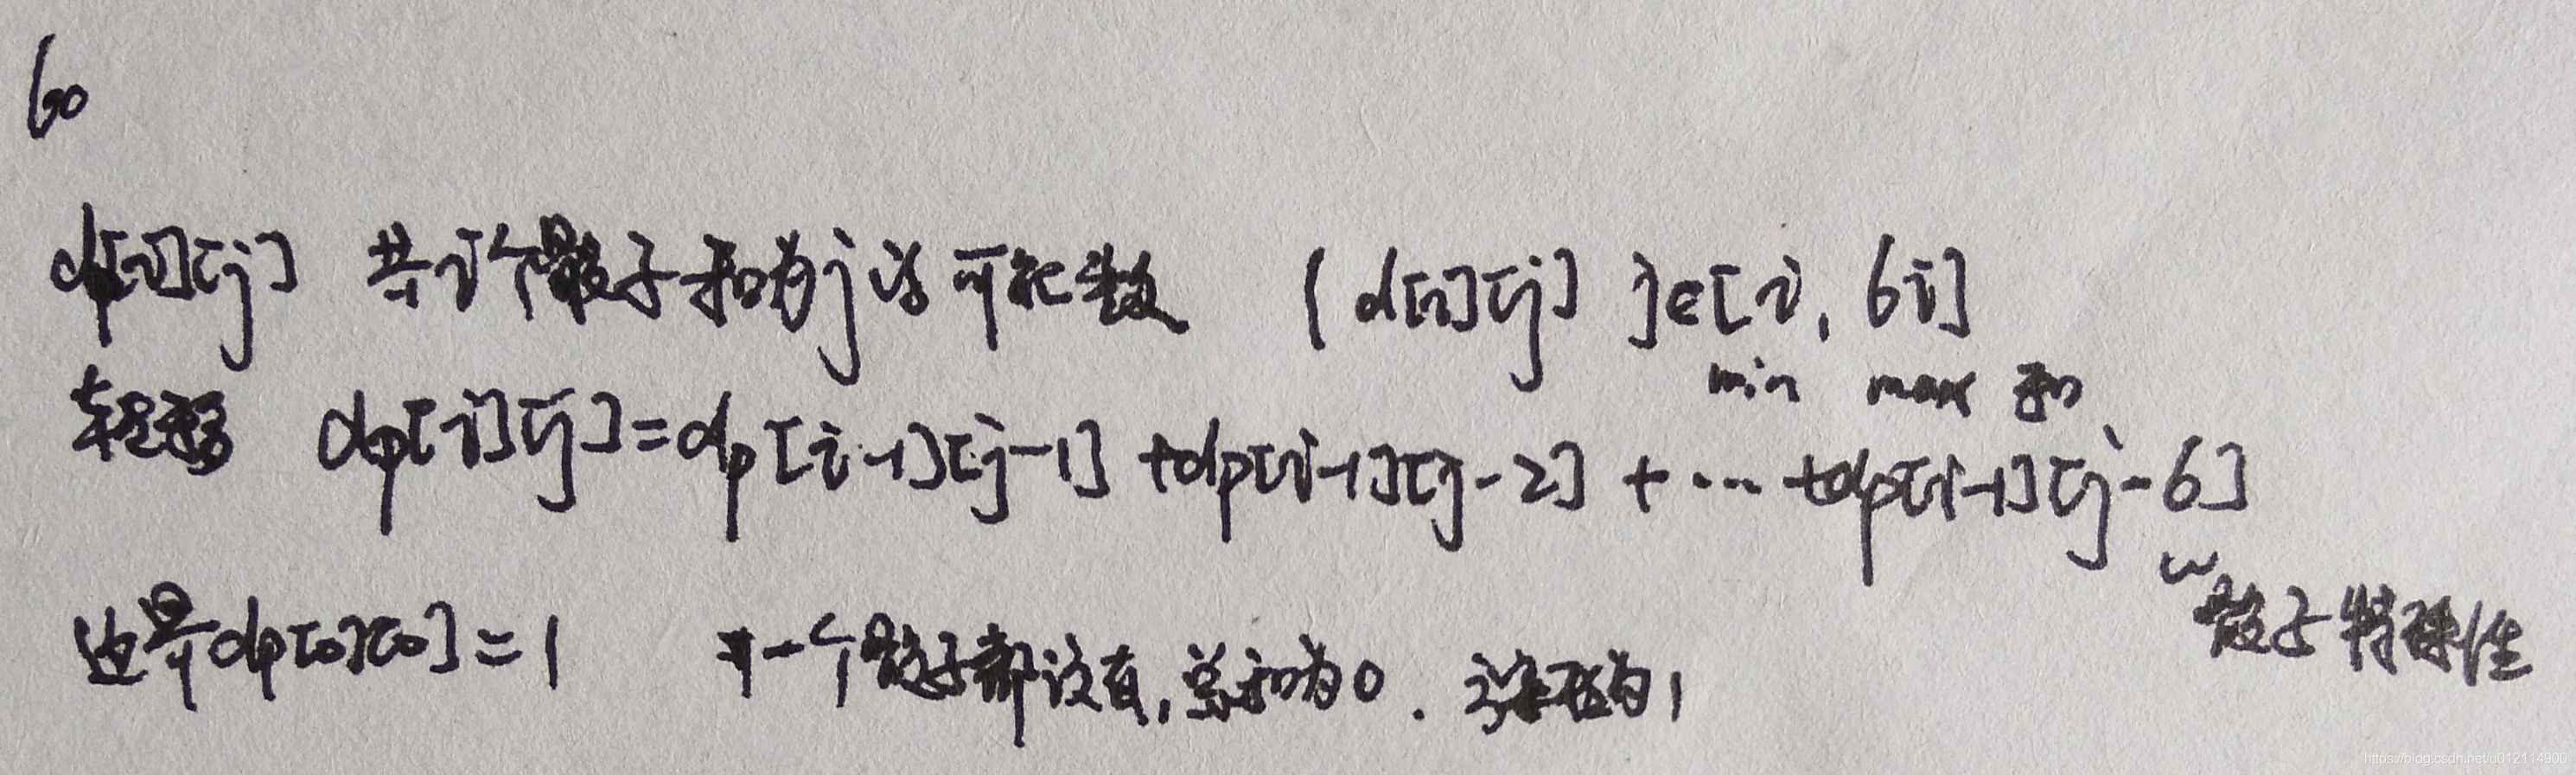 60
dp[i][j] 共i个骰子和为j的可能数 ( d[i][j] ]∈[i, 6i]
min max 和
转移 dp[i][j]=dp[i-1][j-1] +dp[i-1][j-2] + ... +dp[i-1][j-6]
骰子特殊性
边界dp[0][0]=1 一个骰子都没有,总和为0. 为1
https://blog.csdn.net/u012114900